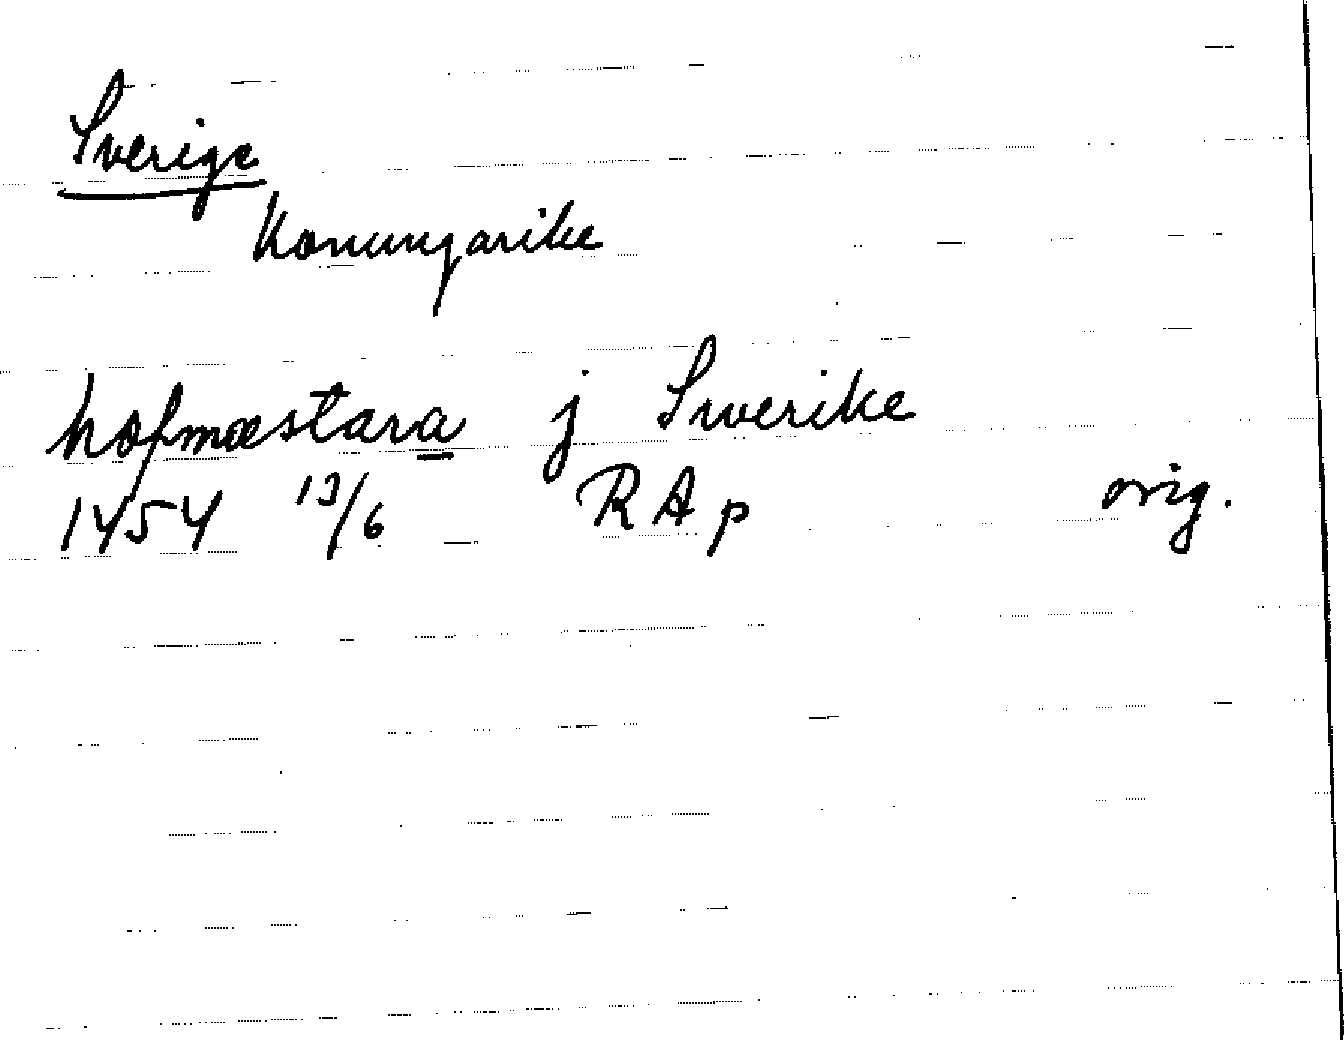 Sverige
Konungarike
hofmæstara j Swerike
1454 13/6 RAp orig.